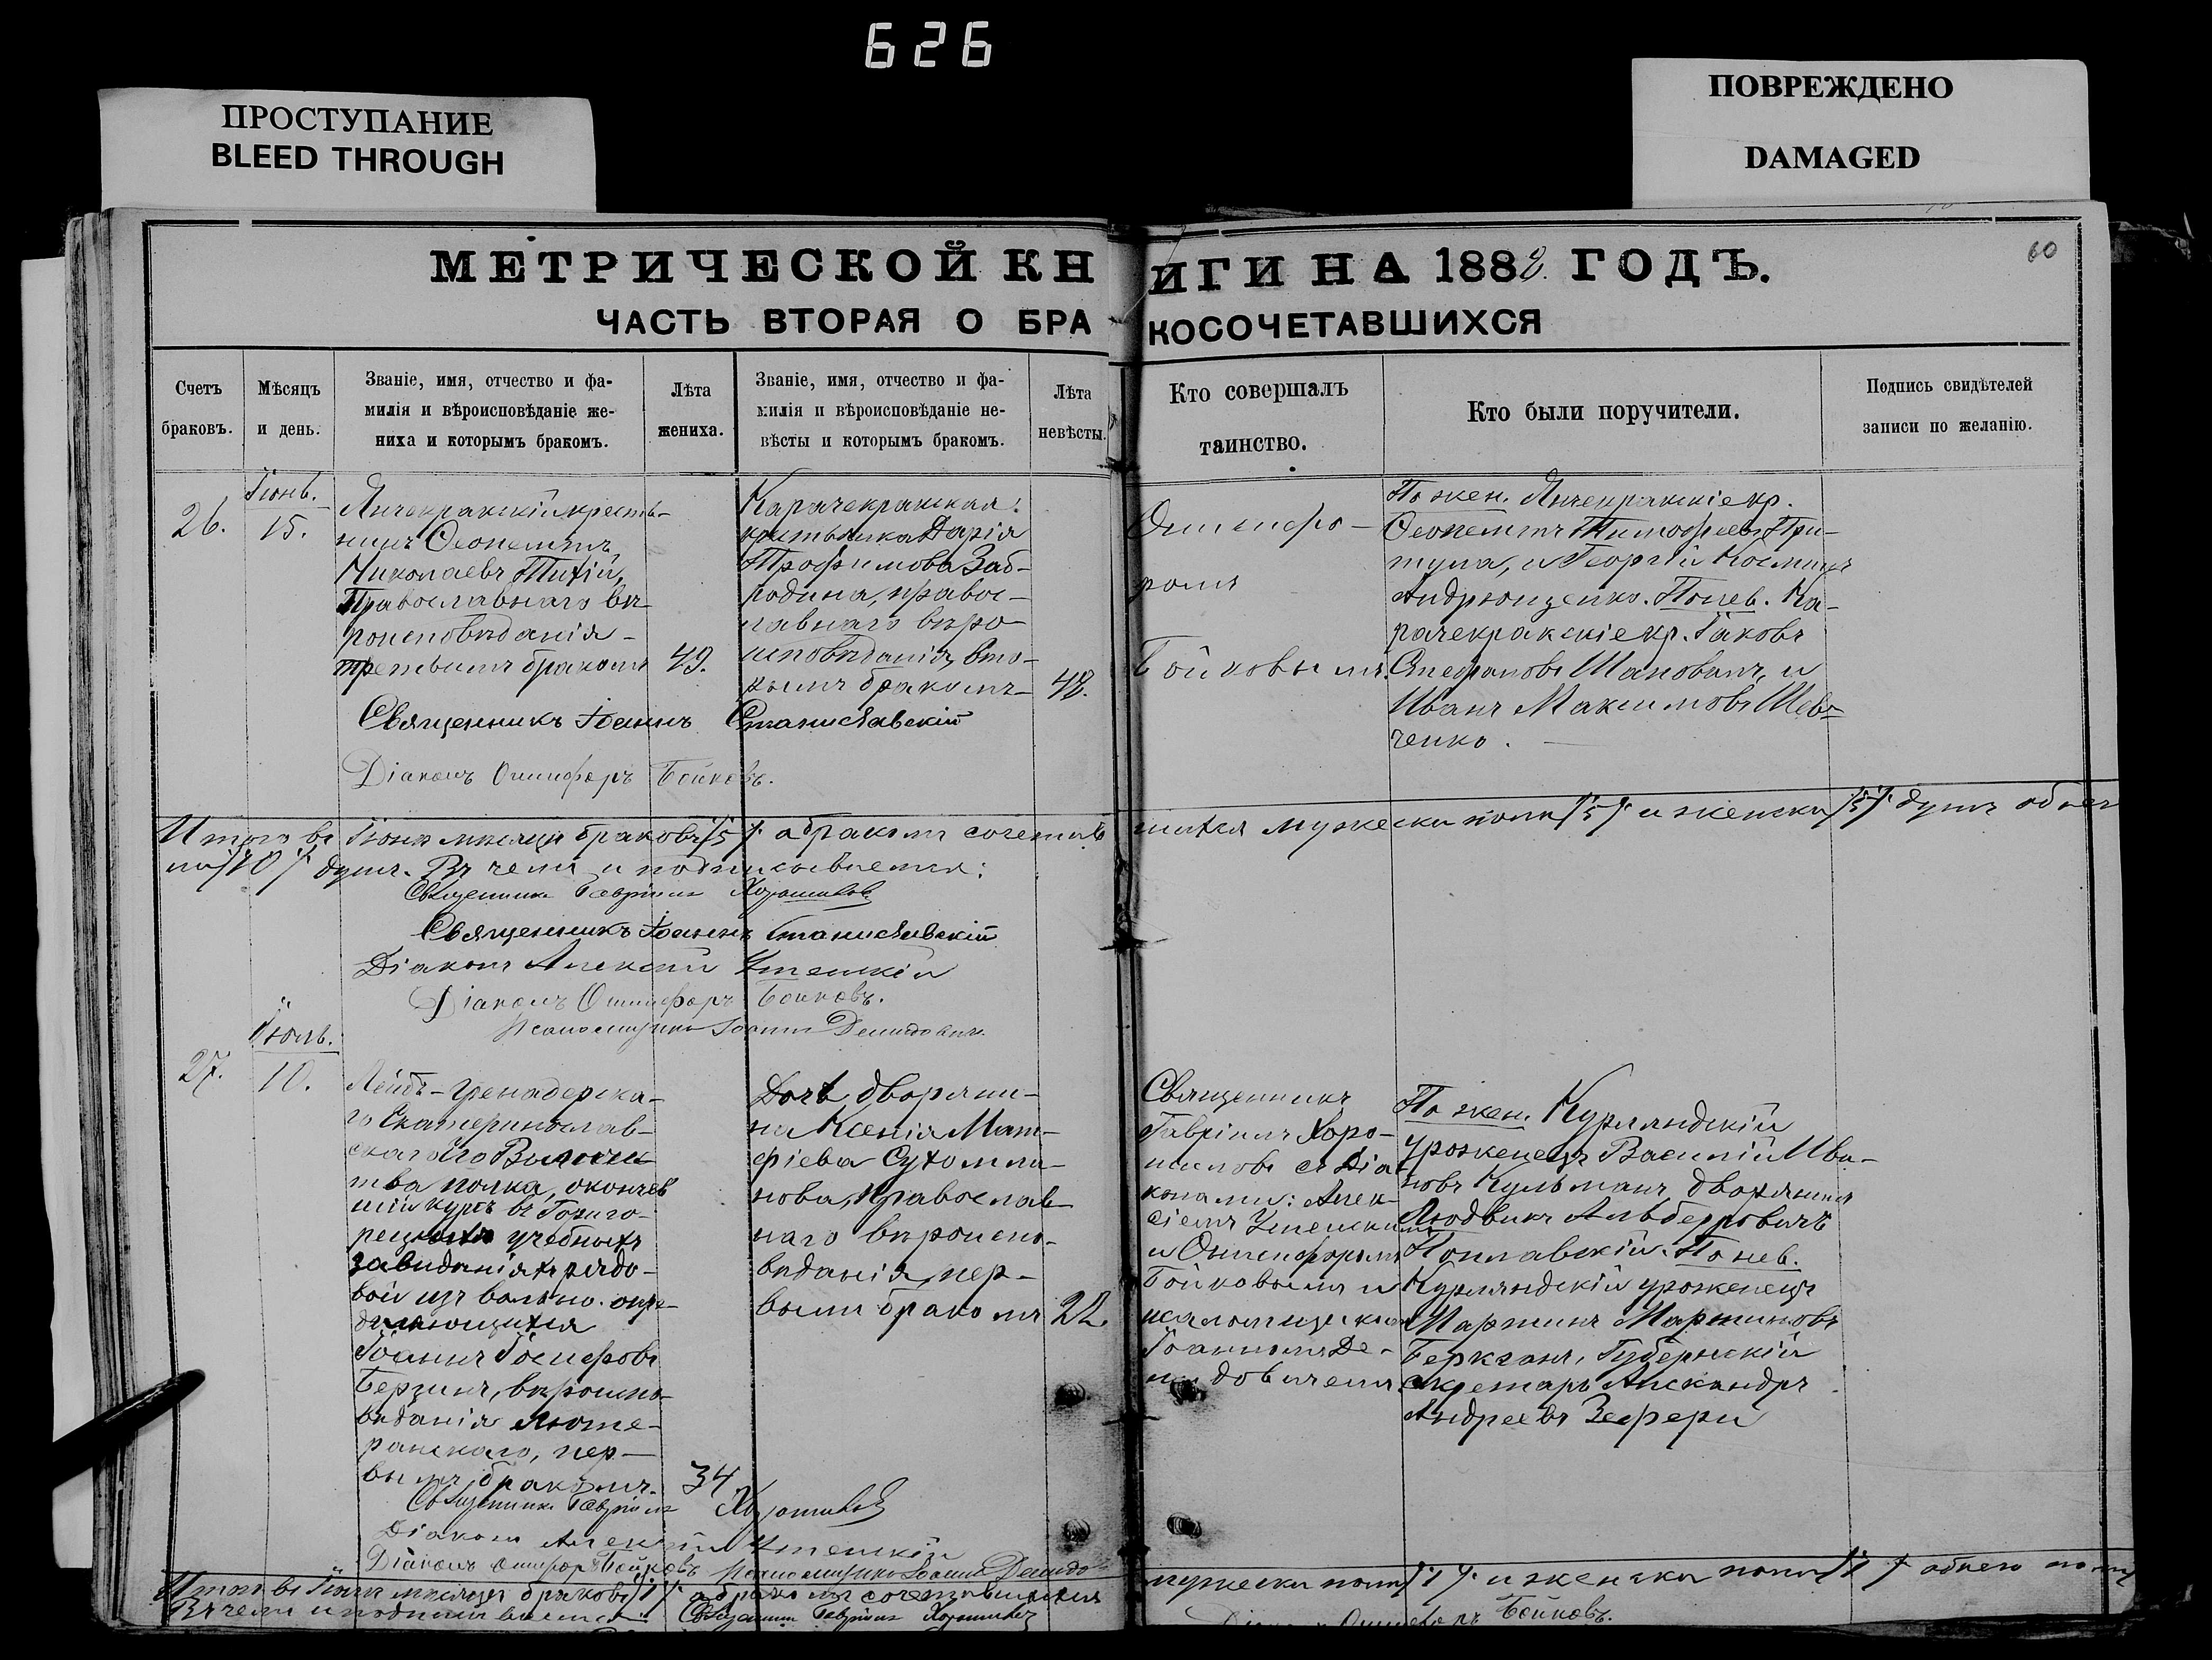 626
ПРОСТУПАНИЕ
BLEED THROUGH
ПОВРЕЖДЕНО
DAMAGED
60
МЕТРИЧЕСКОЙ КНИГИ НА 1882 ГОДЪ.
ЧАСТЬ ВТОРАЯ О БРАКОСОЧЕТАВШИХСЯ
Счетъ
браковъ.
Мѣсяцъ
и день.
Званіе, имя, отчество и фа-
милія и вѣроисповѣданіе же-
ниха и которымъ бракомъ.
Лѣта
жениха.
Званіе, имя, отчество и фа-
милія и вѣроисповѣданіе не-
вѣсты и которымъ бракомъ.
Лѣта
невѣсты.
Кто совершалъ
таинство.
Кто были поручители.
Подпись свидѣтелей
записи по желанію.
26.
Іюнь.
15.
Янчекракскій кресть-
нинъ Ѳеопемптъ
Николаевъ Тихій,
Православнаго вѣ-
роисповѣданія
третьимъ бракомъ
49.
Карачекракская
крестьянка Дарія
Трофимова Заб-
родина, правос-
лавнаго вѣро-
исповѣданія, вто-
рымъ бракомъ
48.
Онисифо-
ромъ
Бойковымъ
По жен. Янчекракскіе кр.
Ѳеопемптъ Тимофеевъ При-
тула, и Георгій Косминъ
Андрющенко. По нев. Ка-
рачекракскіе кр. Іаковъ
Стефановъ Шаповалъ, и
Иванъ Максимовъ Шев-
ченко.
Священникъ Іоаннъ Станиславскій
Діаконъ Онисифоръ Бойковъ.
Итого въ Іюнѣ мѣсяцѣ браковъ /5/. а бракомъ сочетав
шихся мужеска пола /5/ и женска /5/ душъ обоего
пола /10/ душъ. Въ чемъ и подписываемся:
Священникъ Гавріилъ Хорошиловъ
Священникъ Іоаннъ Станиславскій
Діаконъ Алексій Успенскій
Діаконъ Онисифоръ Бойковъ.
Псаломщикъ Іоаннъ Демидовичъ
27.
Іюль.
10.
Лейбъ-Гренадерска-
го Екатеринослав-
скаго Его Величес
тва полка, окончив
шій курсъ въ Гориго-
рецкихъ учебныхъ
заведеніяхъ рядо-
вой изъ вольно-опре-
дѣляющихся
Іоаннъ Іосифовъ
Берзинъ, вѣроиспо-
вѣданія люте-
ранскаго, пер-
вымъ бракомъ.
34
Дочь дворяни-
на Ксенія Мат-
фіева Сухомли-
нова, православ-
наго вѣроиспо-
вѣданія, пер-
вымъ бракомъ
22.
Священникъ
Гавріилъ Хоро-
шиловъ съ Діа-
конами: Алек-
сіемъ Успенскимъ
и Онисифоромъ
Бойковымъ и
псаломщикомъ
Іоанномъ Де-
мидовичемъ
По жен. Курляндскій
уроженецъ Василій Ива-
новъ Кульманъ дворянинъ
Людвикъ Альбертовичъ
Поплавскій. По нев.
Курляндскій уроженецъ
Мартинъ Мартиновъ
Беркганъ, Губернскій
секретарь Александръ
Андреевъ Зефери
Священникъ Гавріилъ Хорошиловъ
Діаконъ Алексій Успенскій
Діаконъ Онисифоръ Бойковъ Псаломщикъ Іоаннъ Демидо
Итого въ Іюлѣ мѣсяцѣ браковъ /1/ а бракомъ сочетавшихся
мужеска пола /1/ и женска пола /1/ обоего пола
Въ чемъ и подписываемся: Священникъ Гавріилъ Хорошиловъ
Діаконъ Онисифоръ Бойковъ.